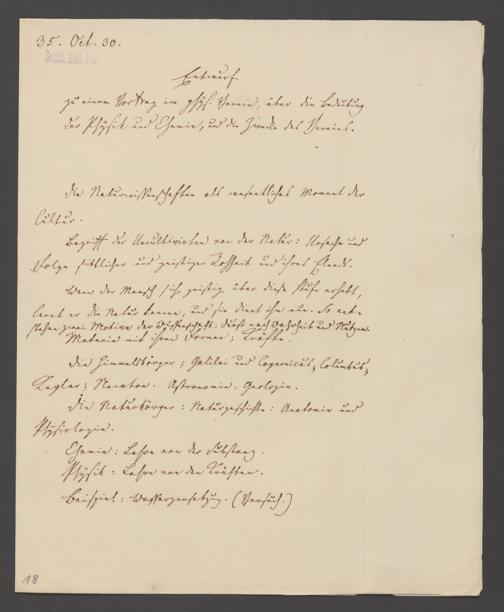 35. Oct. 30.
Senck. Bibl. Ffm.
Entwurf
zu einem Vortrag im phys. Verein, über die Bedeutung
der Physik und Chemie, und die Zwecke des Vereins.
Die Naturwissenschaften als wesentliches Moment der
Cultur.
Begriff der Uncultivirten von der Natur: Ursache und
Folge sittlicher und geistiger Rohheit und ihres Elends.
Wenn der Mensch sich geistig über diese Stufe erhebt,
lernt er die Natur kennen, und sie dient ihm nun. So ent-
stehen zwei Motive der Wissenschaft: Durst nach Wahrheit und Nutzen.
Materie mit ihren Formen; Kräfte.
Die Himmelskörper; Galilei und Copernicus; Columbus;
Kepler; Newton. Astronomie, Geologie.
Die Naturkörper: Naturgeschichte: Anatomie und
Physiologie.
Chemie: Lehre von der Substanz.
Physik: Lehre von den Kräften.
Beispiel: Wasserzersetzung. (Versuch.)
18